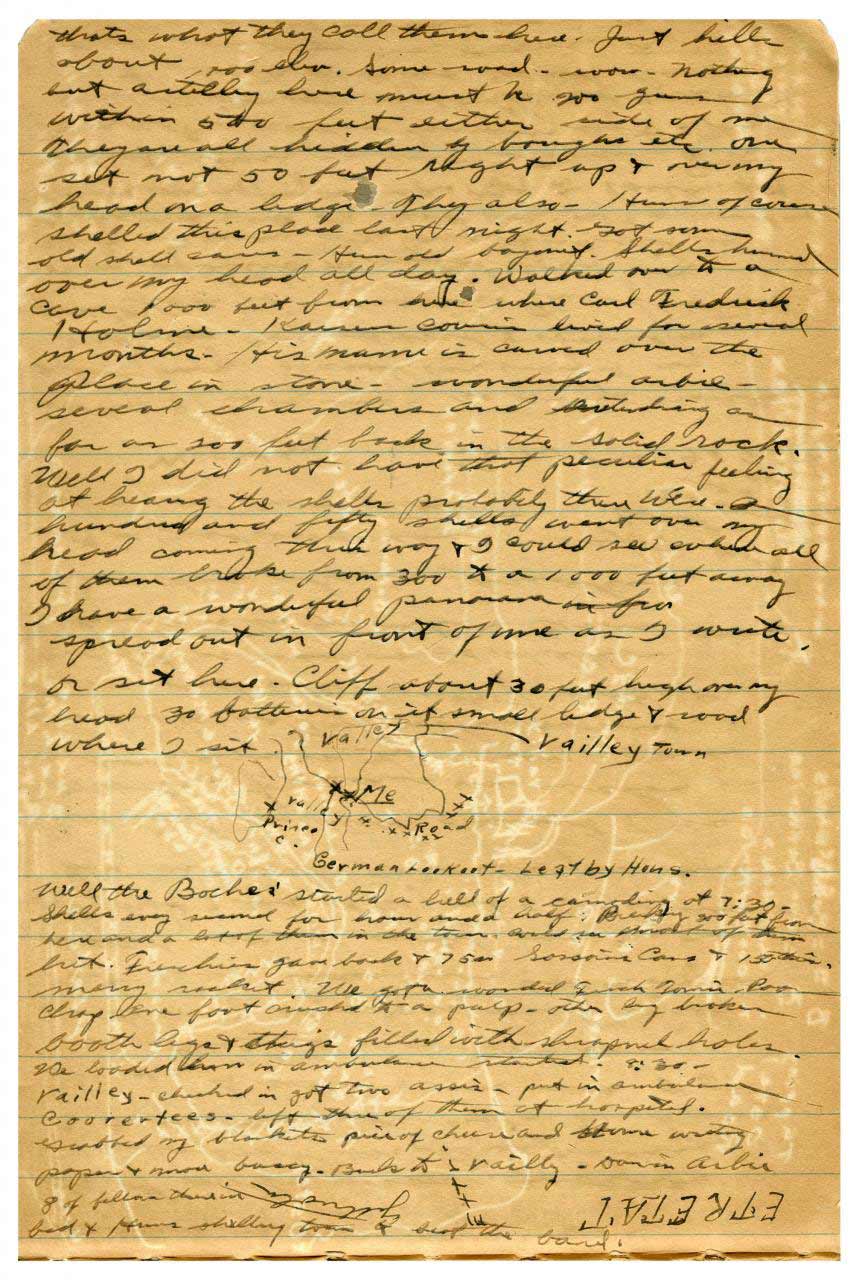 thats what they call them here. Just hills
about 1,000 elev. Some road - wow - Nothing
but artillery here must be 200 guns
within 500 feet either side of me
They are all hidden by boughs etc. one
set not 50 feet right up & over my
head on a ledge. They also - Huns of course
shelled this place last night. Got some
old shell cases - Hun old bayonet. Shells hummed
over my head all day. Walked over to a
cave 1000 feet from here where Carl Fredrick
Holme - Kaisers cousin lived for several
months - His name is carved over the
place in stone - wonderful arbie -
several chambers and extending as
far as 200 feet back in the solid rock.
Well I did not have that peculiar feeling
at hearing the shells probably there were - a
hundred and fifty shells went over my
head coming this way & I could see where all
of them broke from 300 to a 1000 feet away
I have a wonderful panorama in fro
spread out in front of me as I write,
or sit here. Cliff about 30 feet high over my
head 30 batteries on it small ledge & road
where I sit.
Valley
Vailley Town
Me
Valley
Prince
C.
Road
German Lookout - Left by Huns.
Well the Boches' started a hell of a canoding at 7:30 -
Shells every second for hour and a half. 200 feet from
here and a lot of them in the town.
hit. Frenchies gave back & 75m
many racket. We got a wounded French Poor
chap one foot crushed to a pulp - other leg broken
booth legs & thigs filled with shrapnel holes.
We loaded them in ambulance started. 9:30 -
Vailley - checked in got two assis - put in ambulance
Coovertees - left three of them at hospital.
my blankets piece of cheese and some writing
paper & more bussy. Back to Vailly - Down in Arbie
8 of fellows there in
bed & Huns shelling town to beat the band.
ETRETAT